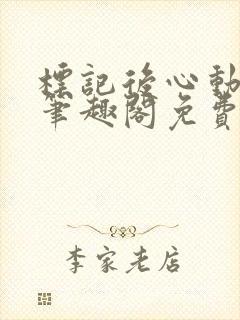 標記後心動
筆趣閣免費
李家老店